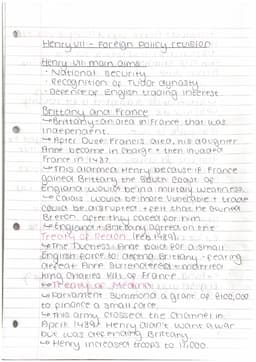 Henry VII - Foreign Policy revision
Henry VII main aims:
· National Security
· Recognition of Tudor dynasty
· Defence of English trading interest
Brittany and France
↳ Brittany - an area in France that was
independent.
↳ After Duke Francis died, his daughter
Anne became in charge & then invaded
France in 1487.
↳ This alarmed Henry because if France
gained Brittany the South Coast of
England would be in a military weakness.
↳ Calais would be more vunerable & trade
could be disrupted & felt that he owed
Breton after they cared for him
↳ England & Brittany agreed on the
Treaty of Redon (Feb 1489).
↳ The Duchess Anne paid for a small
English force to defend Brittany - fearing
defeat Anne surrendered & married
King Charles VIII of France.
↳ Treaty of Medina
↳ Parliament summond a grant of £100,000
to finance a small force.
↳ This army crossed the Channel in
April 1489. Henry didn't want a war
but was defending Brittany.
↳ Henry increased troops to